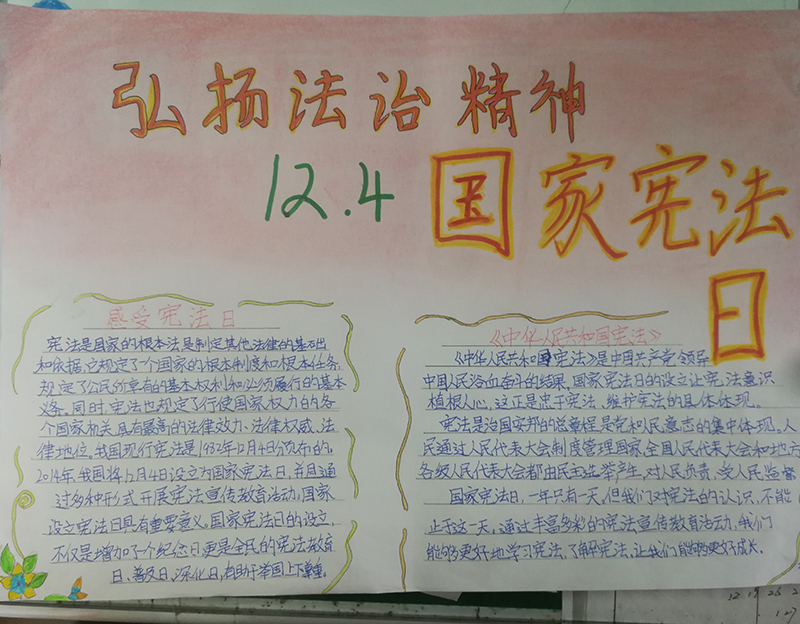 弘扬法治精神
12.4 国家宪法
日
感受宪法日
宪法是国家的根本法是制定其他法律的基础
和依据,它规定了一个国家的根本制度和根本任务,
规定了公民所享有的基本权利和必须履行的基本
义务。同时,宪法也规定了行使国家权力的各
个国家机关具有最高的法律效力、法律权威、法
律地位。我国现行宪法是1982年12月4日颁布的。
2014年,我国将12月4日设立为国家宪法日,并且通
过多种形式开展宪法宣传教育活动,国家
设立宪法日具有重要意义。国家宪法日的设立,
不仅是增加了一个纪念日,更是全民的宪法教育
日、普及日、深化日,有助于举国上下尊重。
《中华人民共和国宪法》
《中华人民共和国宪法》是中国共产党领导
中国人民浴血奋斗的结果,国家宪法日的设立让宪法意识
植根人心,这正是忠于宪法、维护宪法的具体体现。
宪法是治国安邦的总章程是党和人民意志的集中体现。人
民通过人民代表大会制度管理国家,全国人民代表大会和地方
各级人民代表大会都由民主选举产生,对人民负责,受人民监督
国家宪法日,一年只有一天,但我们对宪法的认识,不能
止于这一天,通过丰富多彩的宪法宣传教育活动,我们
能够更好地学习宪法、了解宪法,让我们能够更好成长。
12 19 25 2